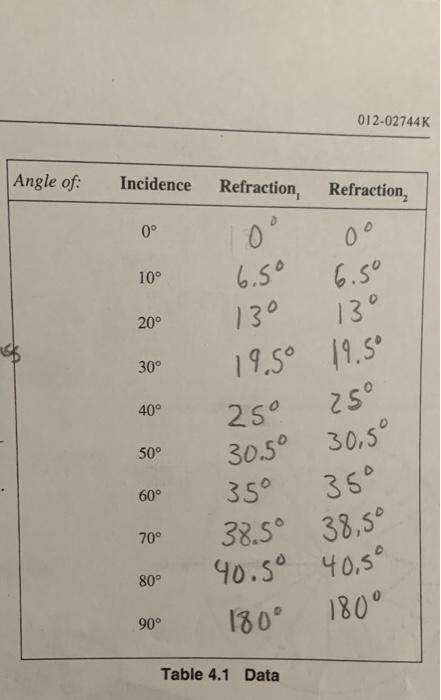 012-02744K
Angle of: Incidence Refraction₁ Refraction₂
0° 0° 0°
10° 6.5° 6.5°
20° 13° 13°
30° 19.5° 19.5°
40° 25° 25°
50° 30.5° 30.5°
60° 35° 35°
70° 38.5° 38.5°
80° 40.5° 40.5°
90° 180° 180°
Table 4.1 Data